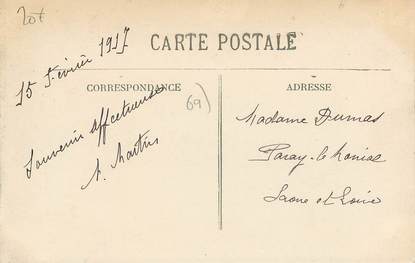 20f
15 Février 1917
CARTE POSTALE
CORRESPONDANCE
69)
Souvenir affectueuse
A. Martin
ADRESSE
Madame Dumas
Paray-le-Monial
Saone et Loire